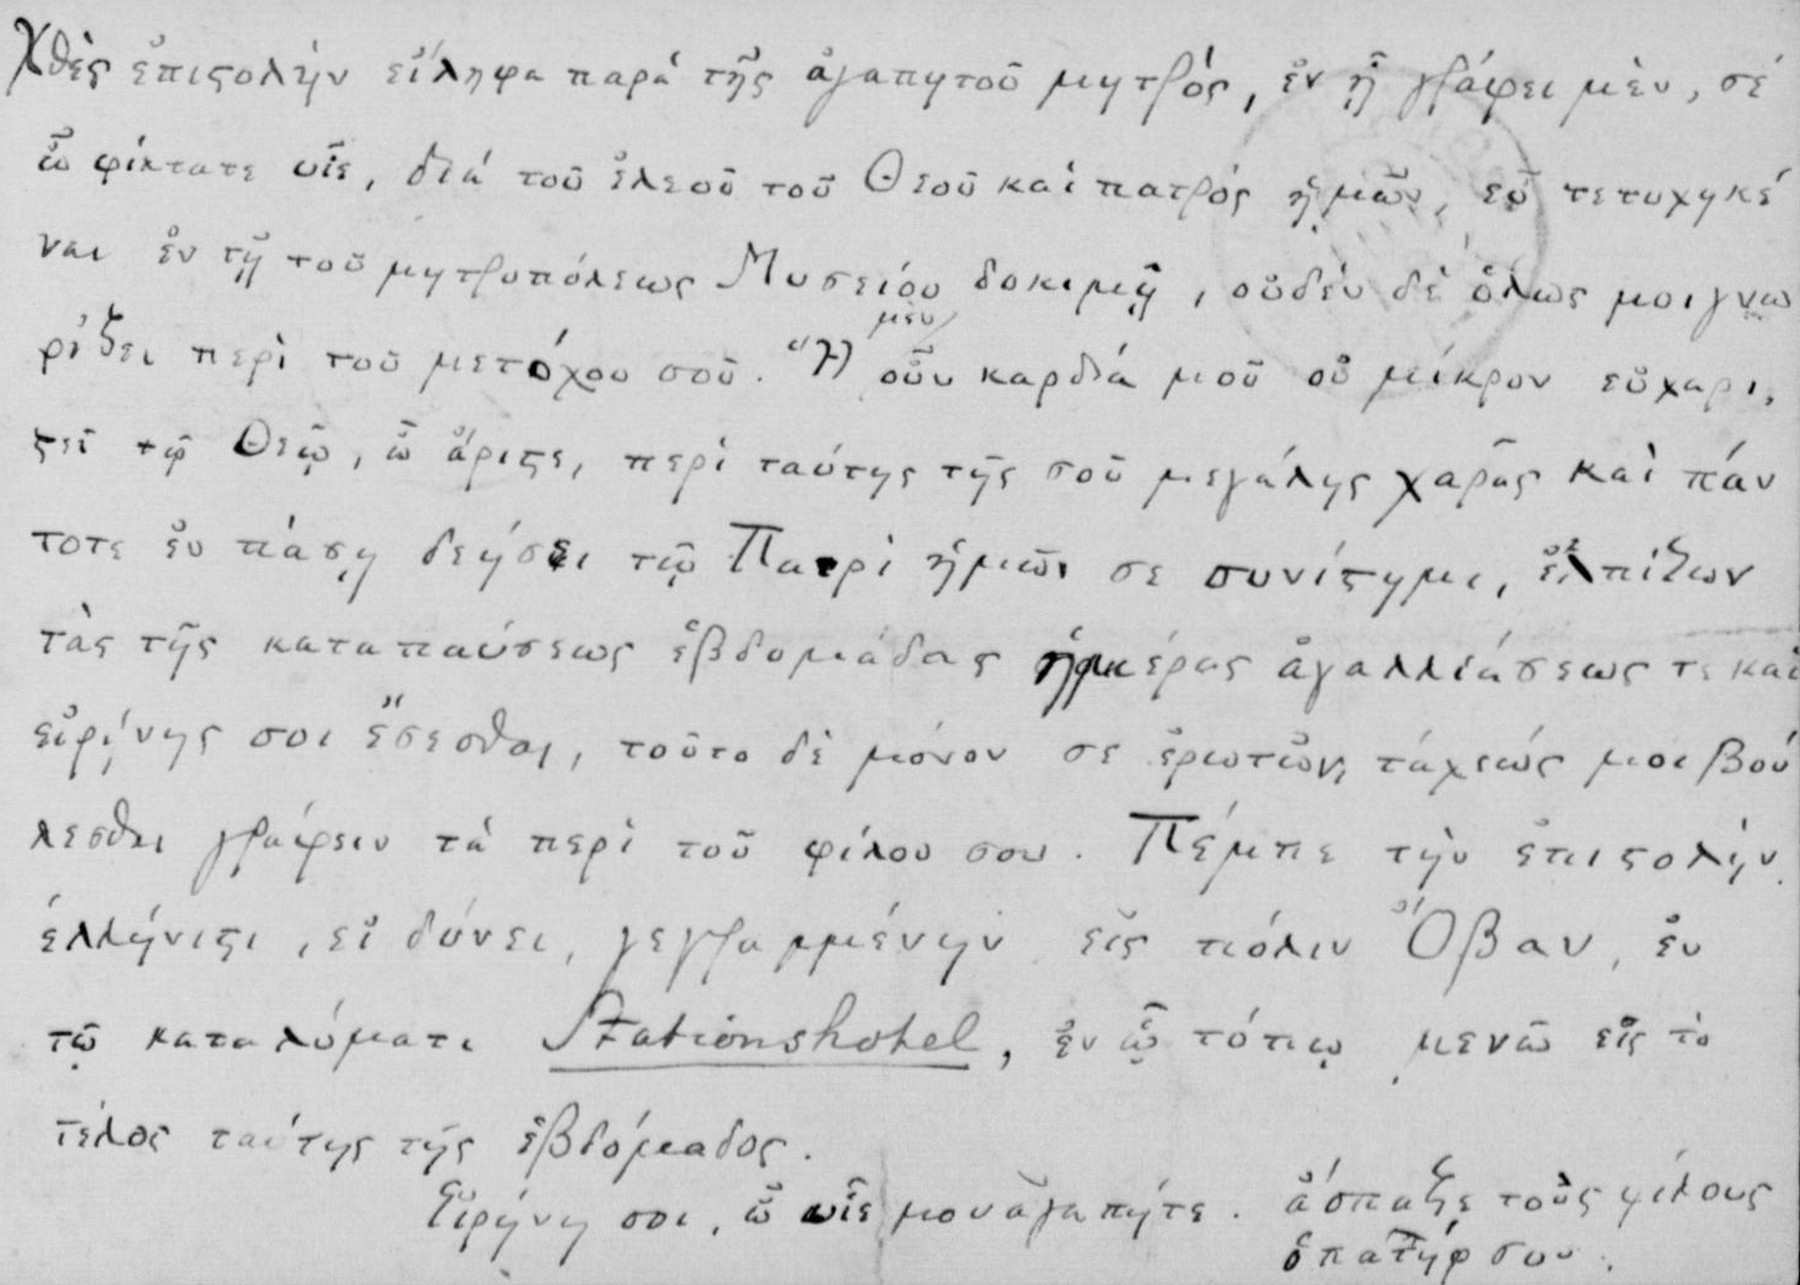 Χθὲς ἐπιςολὴν εἴληφα παρὰ τῆς ἀγαπητοῦ μητρὸς, ἐν ᾗ γράφει μὲν, σέ
ὦ φίλτατε υἷε, διὰ τοῦ ἐλεοῦ τοῦ Θεοῦ καὶ πατρός ἡμῶν, εὖ τετυχηκέ
ναι ἐν τῇ τοῦ μητροπόλεως Μυσείου δοκιμῇ, οὐδὲν δὲ ὅλως μοι γνω
ρίζει περὶ τοῦ μετόχου σοῦ. Ἡ μὲν οὖν καρδιά μοῦ οὐ μίκρον εὐχαρι,
ςεῖ τῷ Θεῷ, ὦ ἄριςε, περὶ ταύτης τῆς σοῦ μεγάλης χαρᾶς καὶ πάν
τοτε ἐν πάσῃ δεήσει τῷ Πατρὶ ἡμῶν σε συνίςημι, ἐλπίζων
τὰς τῆς καταπαύσεως ἑβδομάδας ἡμέρας ἀγαλλιάσεως τε καὶ
εἰρήνης σοι ἔσεσθαι, τοῦτο δὲ μόνον σε ἐρωτῶν, τάχεώς μοι βού
λεσθαι γράφειν τὰ περὶ τοῦ φίλου σου. Πέμπε τὴν ἐπιςολὴν
ἑλλήνιςι, εἰ δύνει, γεγραμμένην εἰς πόλιν Ὄβαν, ἐν
τῷ καταλύματι Stationshotel, ἐν ᾧ τόπῳ μενῶ εἰς τὸ
τέλος ταύτης τῆς ἑβδόμαδος.
Εἰρήνη σοι, ὦ υἷε μου ἀγαπήτε. ἄσπαζε τοὺς φίλους
ὁ πατήρ σου.